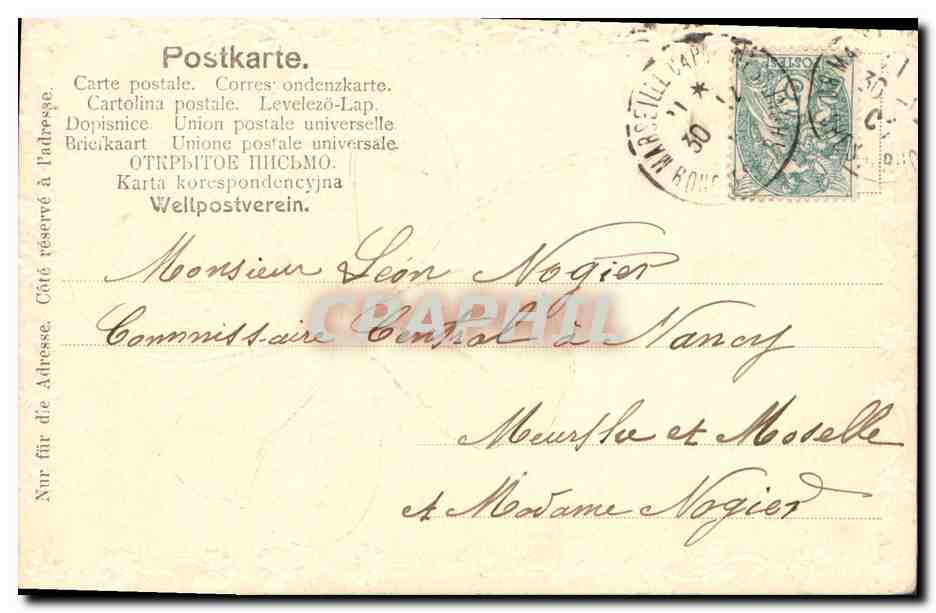 Postkarte.
Carte postale. Corres ondenzkarte.
Cartolina postale. Levelező-Lap.
Dopisnice Union postale universelle
Briefkaart Unione postale universale.
ОТКРЫТОЕ ПИСЬМО.
Karta korespondencyjna
Weltpostverein.
Nur für die Adresse. Côté réservé à l'adresse.
MARSEILLE CAP
30
BOUC
POSTES
30
Monsieur Léon Nogier
CPAPHIL
Commissaire Central à Nancy
Meurthe et Moselle
et Madame Nogier